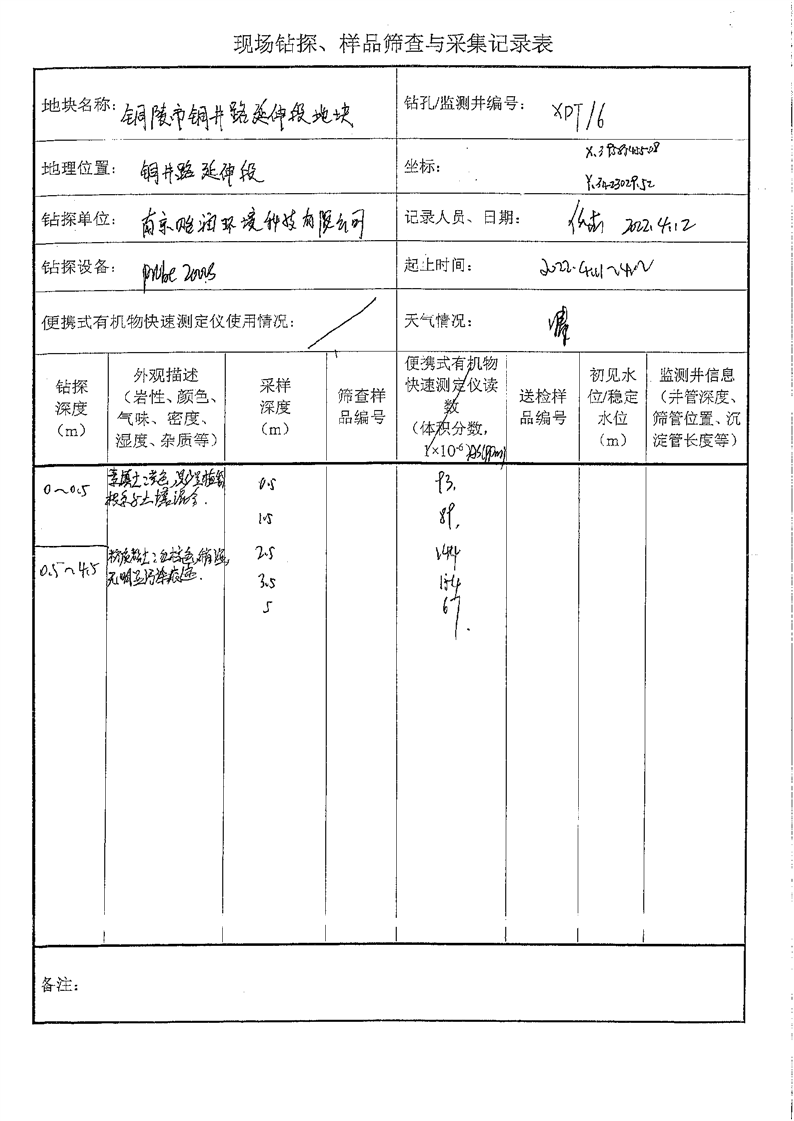 现场钻探、样品筛查与采集记录表
地块名称: 铜陵市铜井路延伸段地块 钻孔/监测井编号: XPT/6
地理位置: 铜井路延伸段 坐标:
钻探单位: 南京贻润环境科技有限公司 记录人员、日期: 2022.4.12
钻探设备: 起止时间:
便携式有机物快速测定仪使用情况: / 天气情况:
钻探
深度
(m)
外观描述
(岩性、颜色、
气味、密度、
湿度、杂质等)
采样
深度
(m)
筛查样
品编号
便携式有机物
快速测定仪读
数
(体积分数,
1×10⁻⁶) (ppm)
送检样
品编号
初见水
位/稳定
水位
(m)
监测井信息
(井管深度、
筛管位置、沉
淀管长度等)
0~0.5 0.5 93
1.5 89
0.5~4.5 2.5 144
无明显污染痕迹. 3.5 154
5 67
备注: